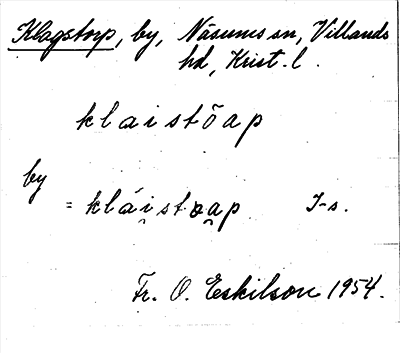 Klagstorp, by, Näsums sn, Villands
hd, Krist. l.
klaistōap
by
= klái̯stꝏa̯p I-s.
Fr. O. Eskilson 1954.